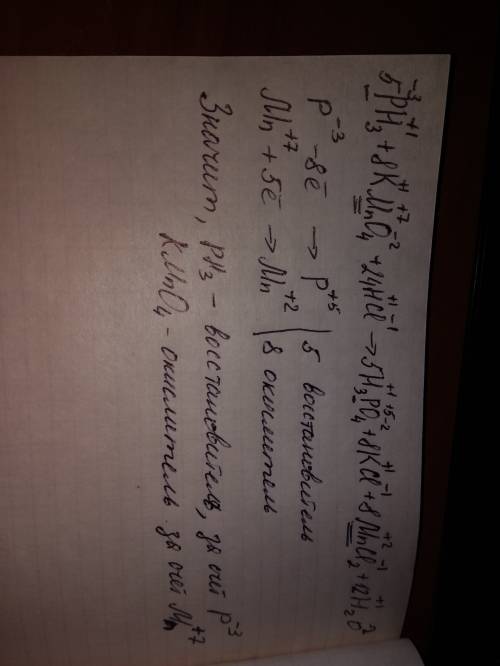 5P⁻³H₃⁺¹ + 8K⁺¹Mn⁺⁷O₄⁻² + 24H⁺¹Cl⁻¹ → 5H₃⁺¹P⁺⁵O₄⁻² + 8K⁺¹Cl⁻¹ + 8Mn⁺²Cl₂⁻¹ + 12H₂⁺¹O⁻²
P⁻³ - 8ē → P⁺⁵ | 5 восстановитель
Mn⁺⁷ + 5ē → Mn⁺² | 8 окислитель
Значит, PH₃ - восстановитель, за счёт P⁻³
KMnO₄ - окислитель за счёт Mn⁺⁷